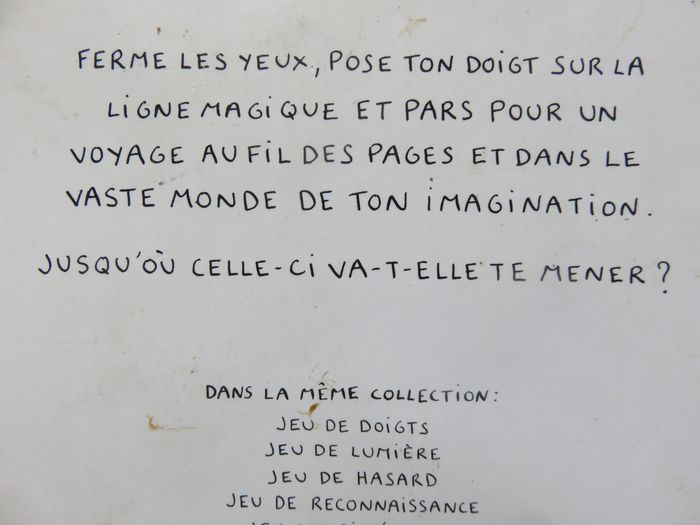 FERME LES YEUX, POSE TON DOIGT SUR LA
LIGNE MAGIQUE ET PARS POUR UN
VOYAGE AU FIL DES PAGES ET DANS LE
VASTE MONDE DE TON IMAGINATION.
JUSQU'OÙ CELLE-CI VA-T-ELLE TE MENER ?
DANS LA MÊME COLLECTION :
JEU DE DOIGTS
JEU DE LUMIÈRE
JEU DE HASARD
JEU DE RECONNAISSANCE